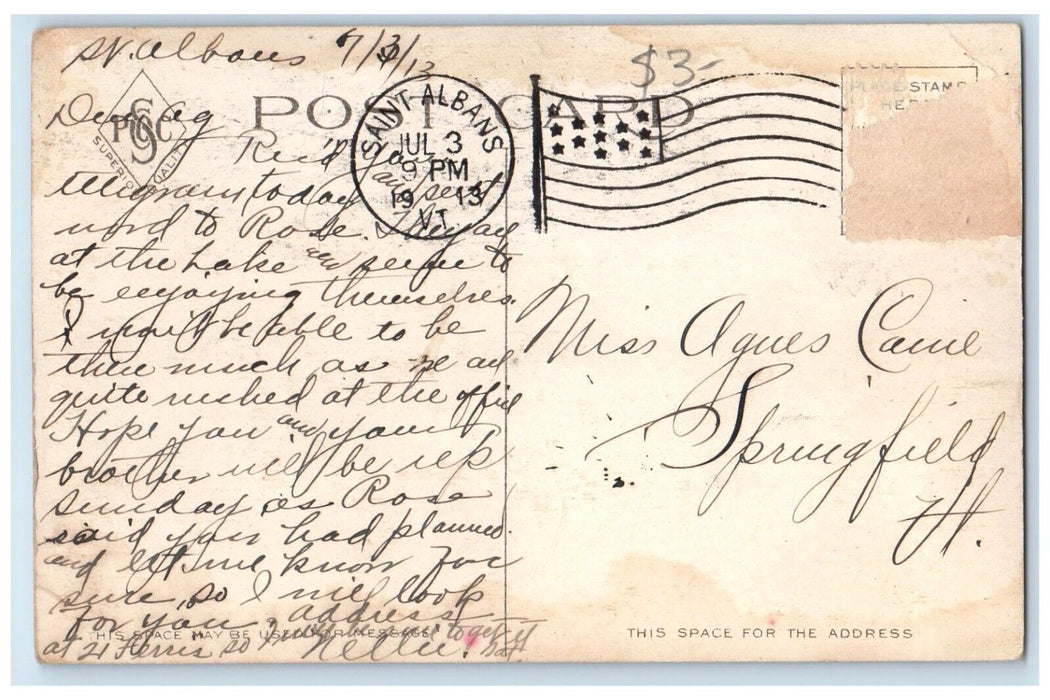 St. Albans 7/3/13
$3-
POST CARD
PLACE STAMP
HERE
SAINT ALBANS
JUL 3
9 PM
1913
VT.
PCSC
SUPERIOR QUALITY
Dear Ag
Rec'd your
telegram today and sent
word to Rose. They are
at the Lake and seem to
be enjoying themselves.
I won't be able to be
there much as we are
quite rushed at the office
Hope you and your
brother will be up
Sunday as Rose
said you had planned.
and let me know for
sure, so I will look
for you, address
at 21 Ferris so I will be sure to get it
Nellie.
THIS SPACE MAY BE USED FOR MESSAGE
Miss Agnes Caine
Springfield
Vt.
THIS SPACE FOR THE ADDRESS